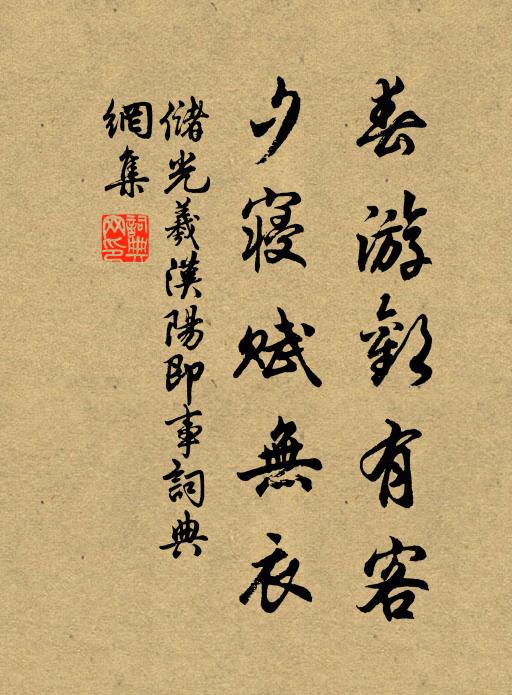 春游歡有客
夕寢賦無衣
儲光羲漢陽即事詞典
網集
詞典
网印